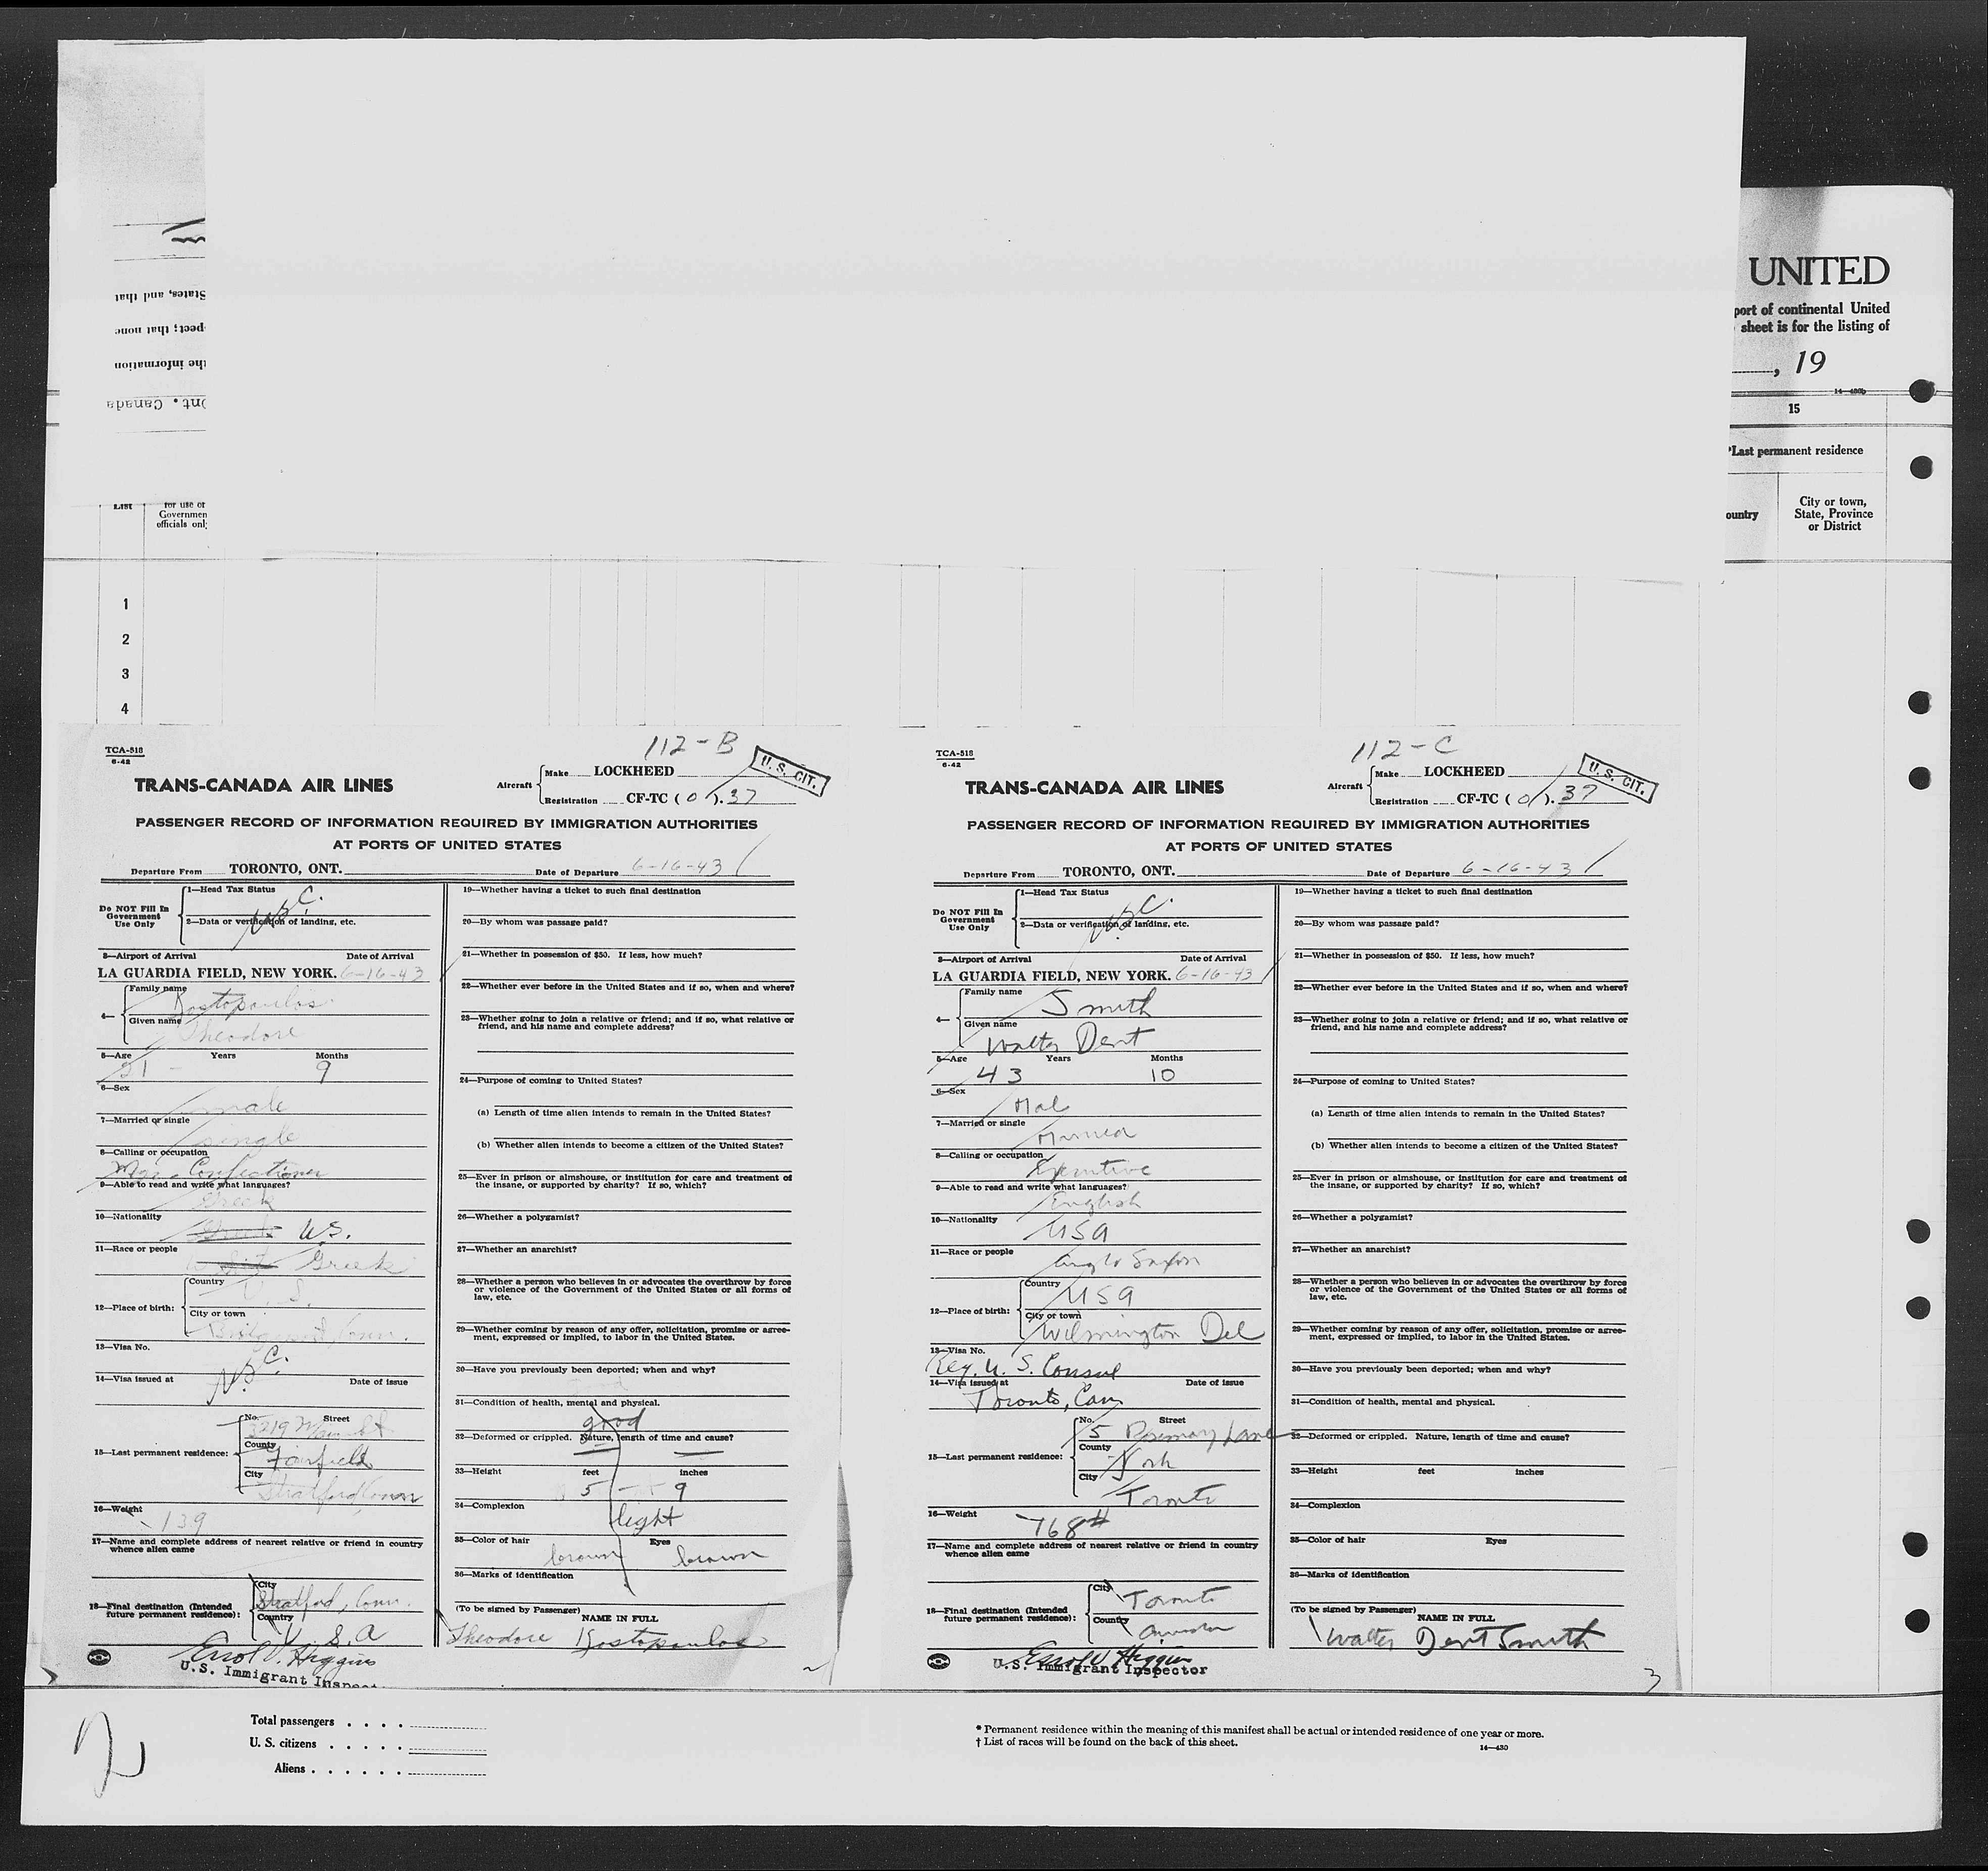 UNITED
port of continental United
sheet is for the listing of
, 19
14—430b
15
*Last permanent residence
ountry
City or town,
State, Province
or District
States, and that
pect; that none
the information
Ont. Canada
List
for use of
Governmen
officials only
1
2
3
4
112-B
TCA-518
6-42
TRANS-CANADA AIR LINES
Aircraft
Make LOCKHEED
Registration CF-TC ( 0 ). 37
U. S. CIT.
PASSENGER RECORD OF INFORMATION REQUIRED BY IMMIGRATION AUTHORITIES
AT PORTS OF UNITED STATES
Departure From TORONTO, ONT. Date of Departure 6-16-43
Do NOT Fill In
Government
Use Only
1—Head Tax Status
2—Data or verification of landing, etc.
U.S.C.
3—Airport of Arrival Date of Arrival
LA GUARDIA FIELD, NEW YORK. 6-16-43
4—
Family name
Kostopoulos
Given name
Theodore
5—Age Years Months
21 - 9
6—Sex
male
7—Married or single
single
8—Calling or occupation
Mgr. Confectioner
9—Able to read and write what languages?
Greek
10—Nationality
Greek U.S.
11—Race or people
White Greek
12—Place of birth:
Country
U.S.
City or town
Bridgeport, Conn.
13—Visa No.
U.S.C.
14—Visa issued at Date of issue
15—Last permanent residence:
No. Street
3219 Main St.
County
Fairfield
City
Stratford Conn
16—Weight
139
17—Name and complete address of nearest relative or friend in country
whence alien came
18—Final destination (Intended
future permanent residence):
City
Stratford, Conn.
Country
U. S. A
Errol V. Higgins
U.S. Immigrant Inspect
19—Whether having a ticket to such final destination
20—By whom was passage paid?
21—Whether in possession of $50. If less, how much?
22—Whether ever before in the United States and if so, when and where?
23—Whether going to join a relative or friend; and if so, what relative or
friend, and his name and complete address?
24—Purpose of coming to United States?
(a) Length of time alien intends to remain in the United States?
(b) Whether alien intends to become a citizen of the United States?
25—Ever in prison or almshouse, or institution for care and treatment of
the insane, or supported by charity? If so, which?
26—Whether a polygamist?
27—Whether an anarchist?
28—Whether a person who believes in or advocates the overthrow by force
or violence of the Government of the United States or all forms of
law, etc.
29—Whether coming by reason of any offer, solicitation, promise or agree-
ment, expressed or implied, to labor in the United States.
30—Have you previously been deported; when and why?
31—Condition of health, mental and physical.
good
32—Deformed or crippled. Nature, length of time and cause?
33—Height feet inches
5 - 9
34—Complexion
light
35—Color of hair Eyes
brown brown
36—Marks of identification
(To be signed by Passenger)
NAME IN FULL
Theodore Kostopoulos
112-C
TCA-518
6-42
TRANS-CANADA AIR LINES
Aircraft
Make LOCKHEED
Registration CF-TC ( 0 ). 37
U. S. CIT.
PASSENGER RECORD OF INFORMATION REQUIRED BY IMMIGRATION AUTHORITIES
AT PORTS OF UNITED STATES
Departure From TORONTO, ONT. Date of Departure 6-16-43
Do NOT Fill In
Government
Use Only
1—Head Tax Status
2—Data or verification of landing, etc.
U.S.C.
3—Airport of Arrival Date of Arrival
LA GUARDIA FIELD, NEW YORK. 6-16-43
4—
Family name
Smith
Given name
Walter Dent
5—Age Years Months
43 10
6—Sex
Mal
7—Married or single
Married
8—Calling or occupation
Executive
9—Able to read and write what languages?
English
10—Nationality
USA
11—Race or people
Anglo Saxon
12—Place of birth:
Country
USA
City or town
Wilmington Del
13—Visa No.
Reg. U. S. Consul
14—Visa issued at Date of issue
Toronto, Can
15—Last permanent residence:
No. Street
5 Rosemary Lane
County
York
City
Toronto
16—Weight
168#
17—Name and complete address of nearest relative or friend in country
whence alien came
18—Final destination (Intended
future permanent residence):
City
Toronto
Country
Errol V Higgins
U.S. Immigrant Inspector
19—Whether having a ticket to such final destination
20—By whom was passage paid?
21—Whether in possession of $50. If less, how much?
22—Whether ever before in the United States and if so, when and where?
23—Whether going to join a relative or friend; and if so, what relative or
friend, and his name and complete address?
24—Purpose of coming to United States?
(a) Length of time alien intends to remain in the United States?
(b) Whether alien intends to become a citizen of the United States?
25—Ever in prison or almshouse, or institution for care and treatment of
the insane, or supported by charity? If so, which?
26—Whether a polygamist?
27—Whether an anarchist?
28—Whether a person who believes in or advocates the overthrow by force
or violence of the Government of the United States or all forms of
law, etc.
29—Whether coming by reason of any offer, solicitation, promise or agree-
ment, expressed or implied, to labor in the United States.
30—Have you previously been deported; when and why?
31—Condition of health, mental and physical.
32—Deformed or crippled. Nature, length of time and cause?
33—Height feet inches
34—Complexion
35—Color of hair Eyes
36—Marks of identification
(To be signed by Passenger)
NAME IN FULL
Walter Dent Smith
3
2
Total passengers . . . .
U. S. citizens . . . . .
Aliens . . . . . .
* Permanent residence within the meaning of this manifest shall be actual or intended residence of one year or more.
† List of races will be found on the back of this sheet.
14—430